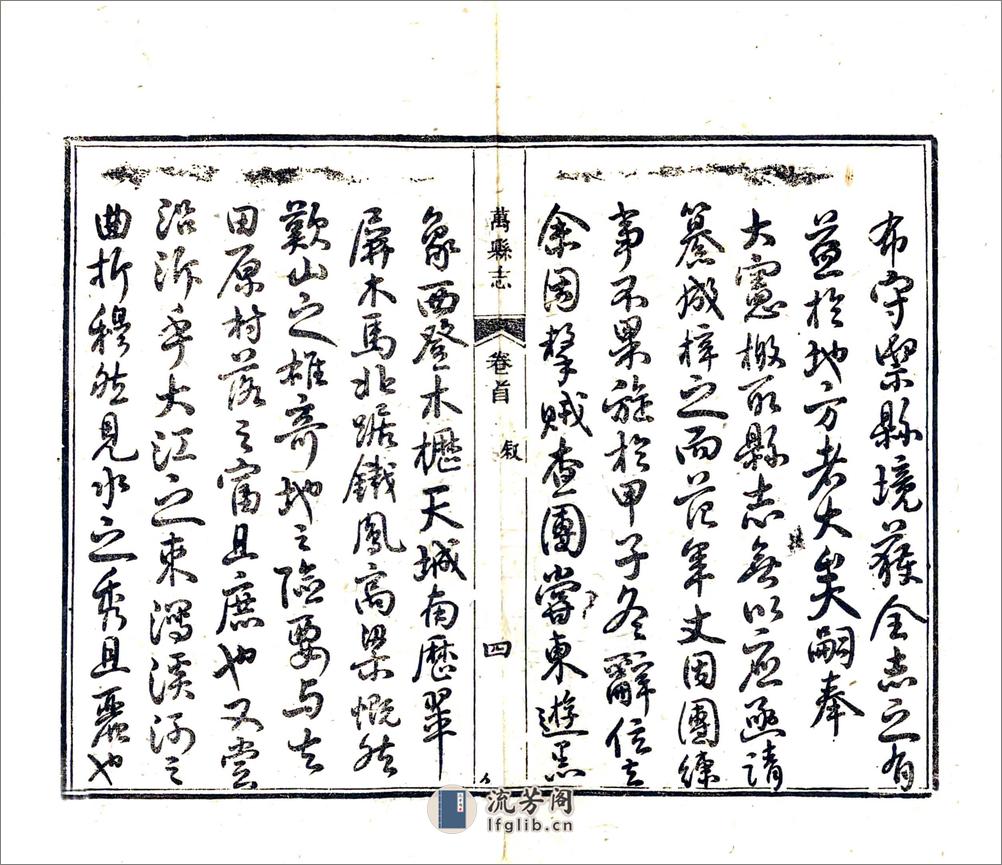 布守禦縣境獲全志之有
益於地方者大矣嗣奉
大憲檄取縣志無以應亟請
纂成梓之而范年丈因團練
事不果旋於甲子冬辭任去
余因擊賊查團嘗東遊黑
萬縣志
卷首
叙
四
象西登木櫪天城南歷翠
屏木馬北踞鐵鳳高梁慨然
歎山之雄奇地之險要与夫
田原村落之富且庶也又嘗
沿泝乎大江之東濁溪河之
曲折穆然見水之秀且麗也
流芳阁
lfglib.cn